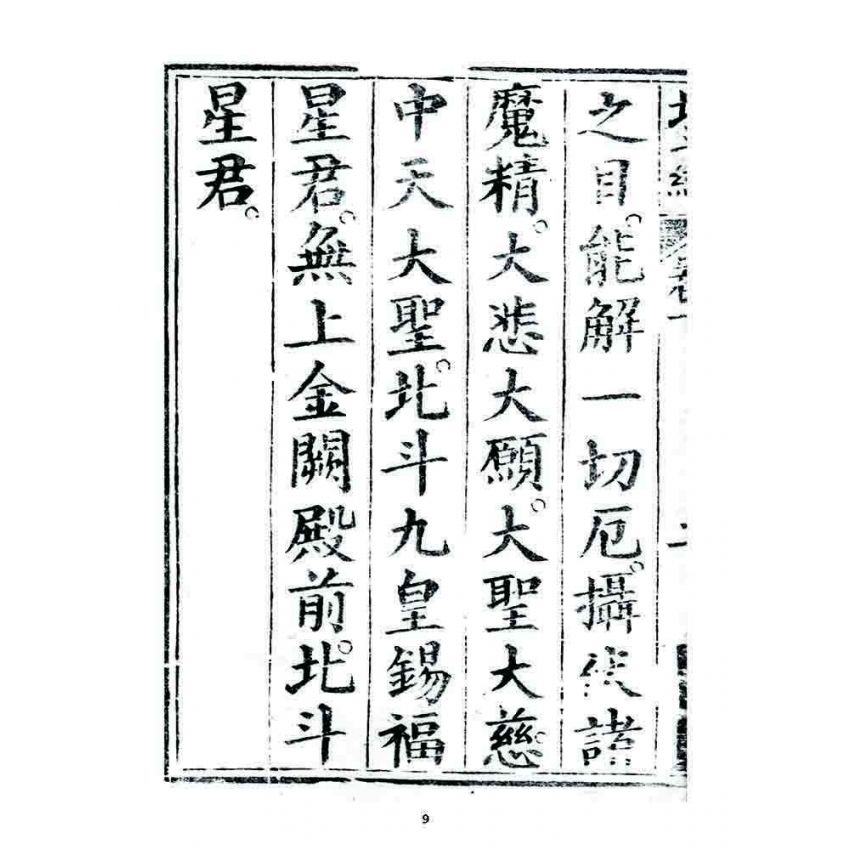 之目。能解一切厄。攝伏諸
魔精。大悲大願。大聖大慈。
中天大聖。北斗九皇錫福
星君。無上金闕殿前。北斗
星君。
9